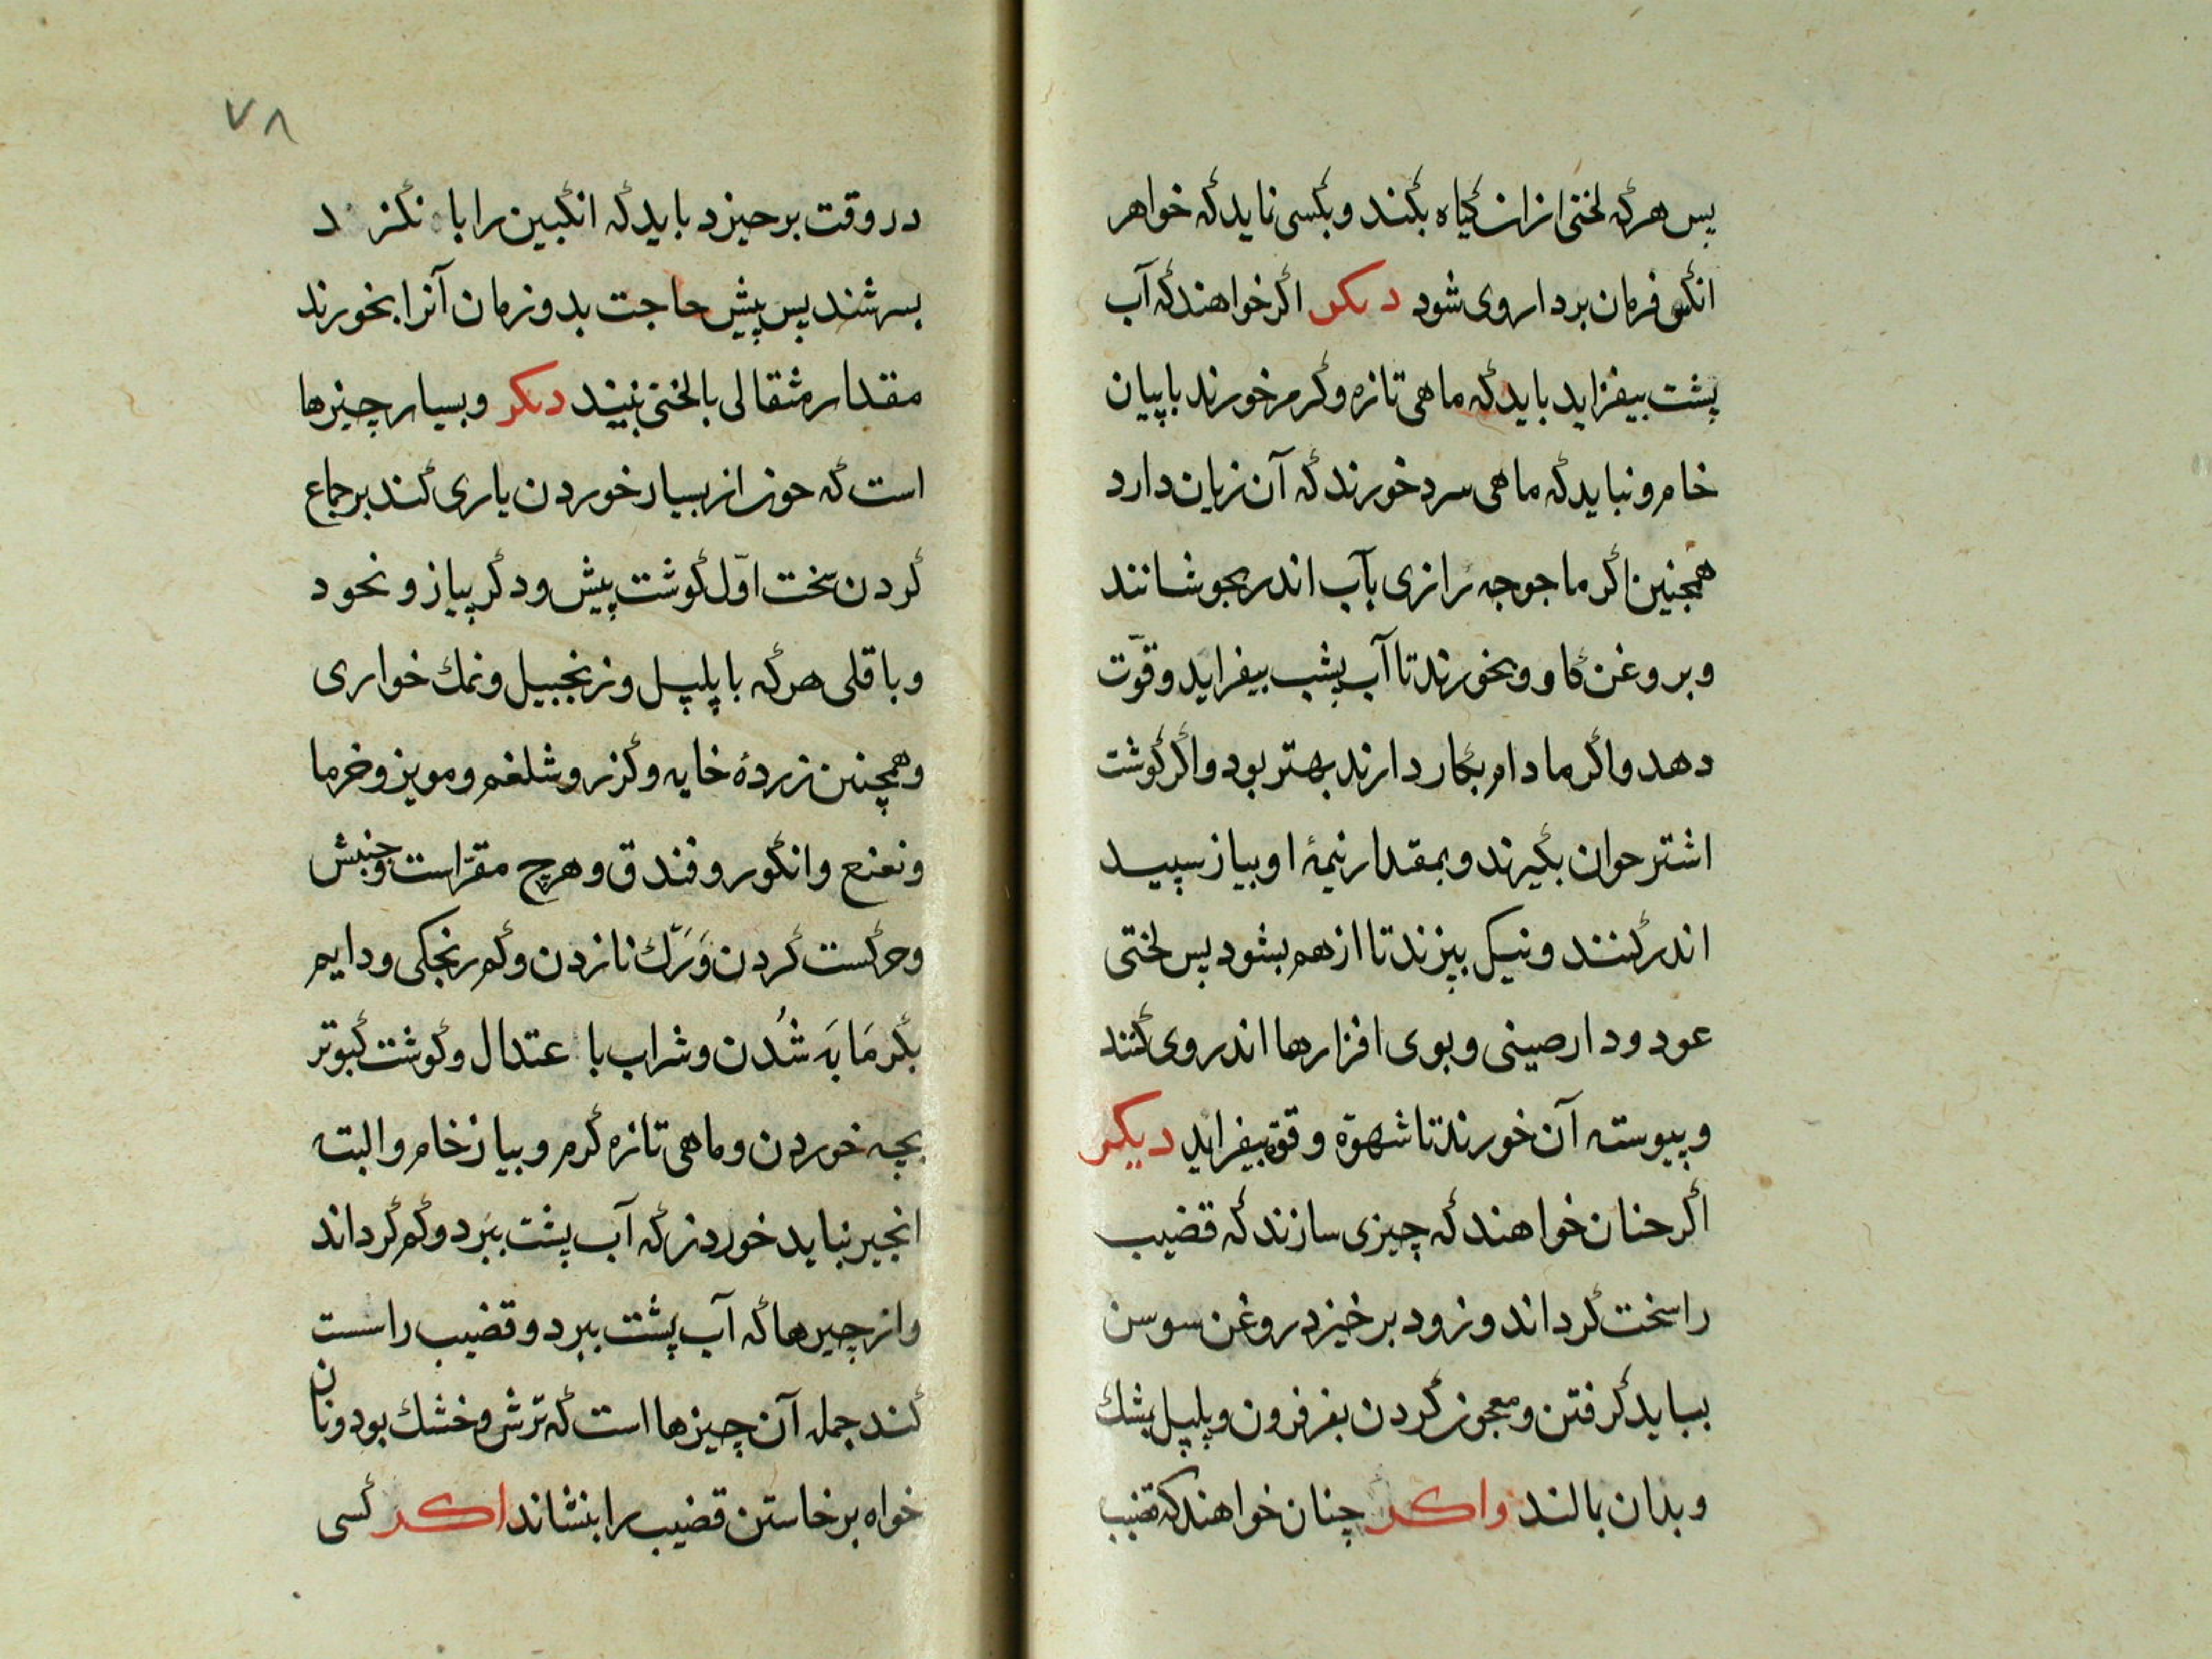 پس هرکه لختی از ان کیاه بکند و بکسی نماید که خواهر
انکس فرمان بردار وی شود دیکر اکر خواهند که آب
پشت بیفزاید باید که ماهی تازه و کرم خورند با پیان
خام و نباید که ماهی سرد خورند که آن زیان دارد
همچنین اکر ماجوجه رازی بآب اندر بجوشانند
و بروغن کاو و بخورند تا آب پشب بیفزاید و قوّت
دهد و اکر مادام بکار دارند بهتر بود و اکر کوشت
اشتر حوان بکیرند و بمقدار نیمۀ او بیاز سپید
اندر کنند و نیک بپزند تا از هم بشود پس لختی
عود و دارصینی و بوی افزارها اندر وی کنند
و پیوسته آن خورند تا شهوة و قوة بیفزاید دیکر
اکر حنان خواهند که چیزی سازند که قضیب
را سخت کرداند و زود برخیزد روغن سوسن
بباید کرفتن و معجون کردن بفرفرون و پلپل
و بدان بمالند واکر چنان خواهند که قضیب
۷۸
در وقت برحیزد باید که انکبین را با
بسرشند پس پیش حاجت بدو زمان آنرا بخورند
مقدار مثقالی با لختی نبیند دیکر و بسیار چیزها
است که حوز از بسیار خوردن یاری کند بر جماع
کردن سخت اوّل کوشت پیش و دکر پیاز و نحود
و باقلی هرکه با پلپل و زنجبیل و نمك خواری
و همچنین زردۀ خایه و کزر و شلغم و مویز و خرما
و نعنع و انکور و فندق و هرچ مقرّاست و جنبش
و حرکست کردن وَ رَک نازدن و کم رنجکی و دایم
بکرمَابَه شُدن و شراب با عتدال و کوشت کبوتر
بچه خوردن و ماهی تازه کرم و بیاز خام و البته
انجیر نباید خوردن که آب پشت ببرد و کم کرداند
و از چیرها که آب پشت ببرد و قضیب را سست
کند جمله آن چیزها است که ترش و خشك بود و نان
خواه برخاستن قضیب را بنشاند اکر کسی